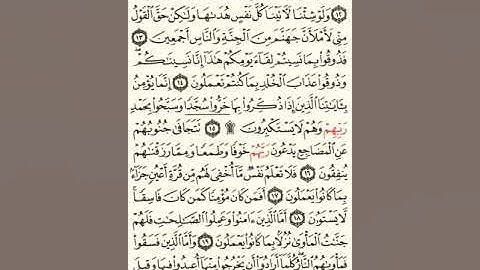 ١٢ وَلَوْ شِئْنَا لَءَاتَيْنَا كُلَّ نَفْسٍ هُدَىٰهَا وَلَٰكِنْ حَقَّ ٱلْقَوْلُ
مِنِّى لَأَمْلَأَنَّ جَهَنَّمَ مِنَ ٱلْجِنَّةِ وَٱلنَّاسِ أَجْمَعِينَ ١٣
فَذُوقُوا۟ بِمَا نَسِيتُمْ لِقَآءَ يَوْمِكُمْ هَٰذَآ إِنَّا نَسِينَٰكُمْ
وَذُوقُوا۟ عَذَابَ ٱلْخُلْدِ بِمَا كُنتُمْ تَعْمَلُونَ ١٤ إِنَّمَا يُؤْمِنُ
بِـَٔايَٰتِنَا ٱلَّذِينَ إِذَا ذُكِّرُوا۟ بِهَا خَرُّوا۟ سُجَّدًا وَسَبَّحُوا۟ بِحَمْدِ
رَبِّهِمْ وَهُمْ لَا يَسْتَكْبِرُونَ ۩ ١٥ تَتَجَافَىٰ جُنُوبُهُمْ
عَنِ ٱلْمَضَاجِعِ يَدْعُونَ رَبَّهُمْ خَوْفًا وَطَمَعًا وَمِمَّا رَزَقْنَٰهُمْ
يُنفِقُونَ ١٦ فَلَا تَعْلَمُ نَفْسٌ مَّآ أُخْفِىَ لَهُم مِّن قُرَّةِ أَعْيُنٍ جَزَآءًۢ
بِمَا كَانُوا۟ يَعْمَلُونَ ١٧ أَفَمَن كَانَ مُؤْمِنًا كَمَن كَانَ فَاسِقًا
لَّا يَسْتَوُۥنَ ١٨ أَمَّا ٱلَّذِينَ ءَامَنُوا۟ وَعَمِلُوا۟ ٱلصَّٰلِحَٰتِ فَلَهُمْ
جَنَّٰتُ ٱلْمَأْوَىٰ نُزُلًۢا بِمَا كَانُوا۟ يَعْمَلُونَ ١٩ وَأَمَّا ٱلَّذِينَ فَسَقُوا۟
فَمَأْوَىٰهُمُ ٱلنَّارُ كُلَّمَآ أَرَادُوٓا۟ أَن يَخْرُجُوا۟ مِنْهَآ أُعِيدُوا۟ فِيهَا وَقِيلَ